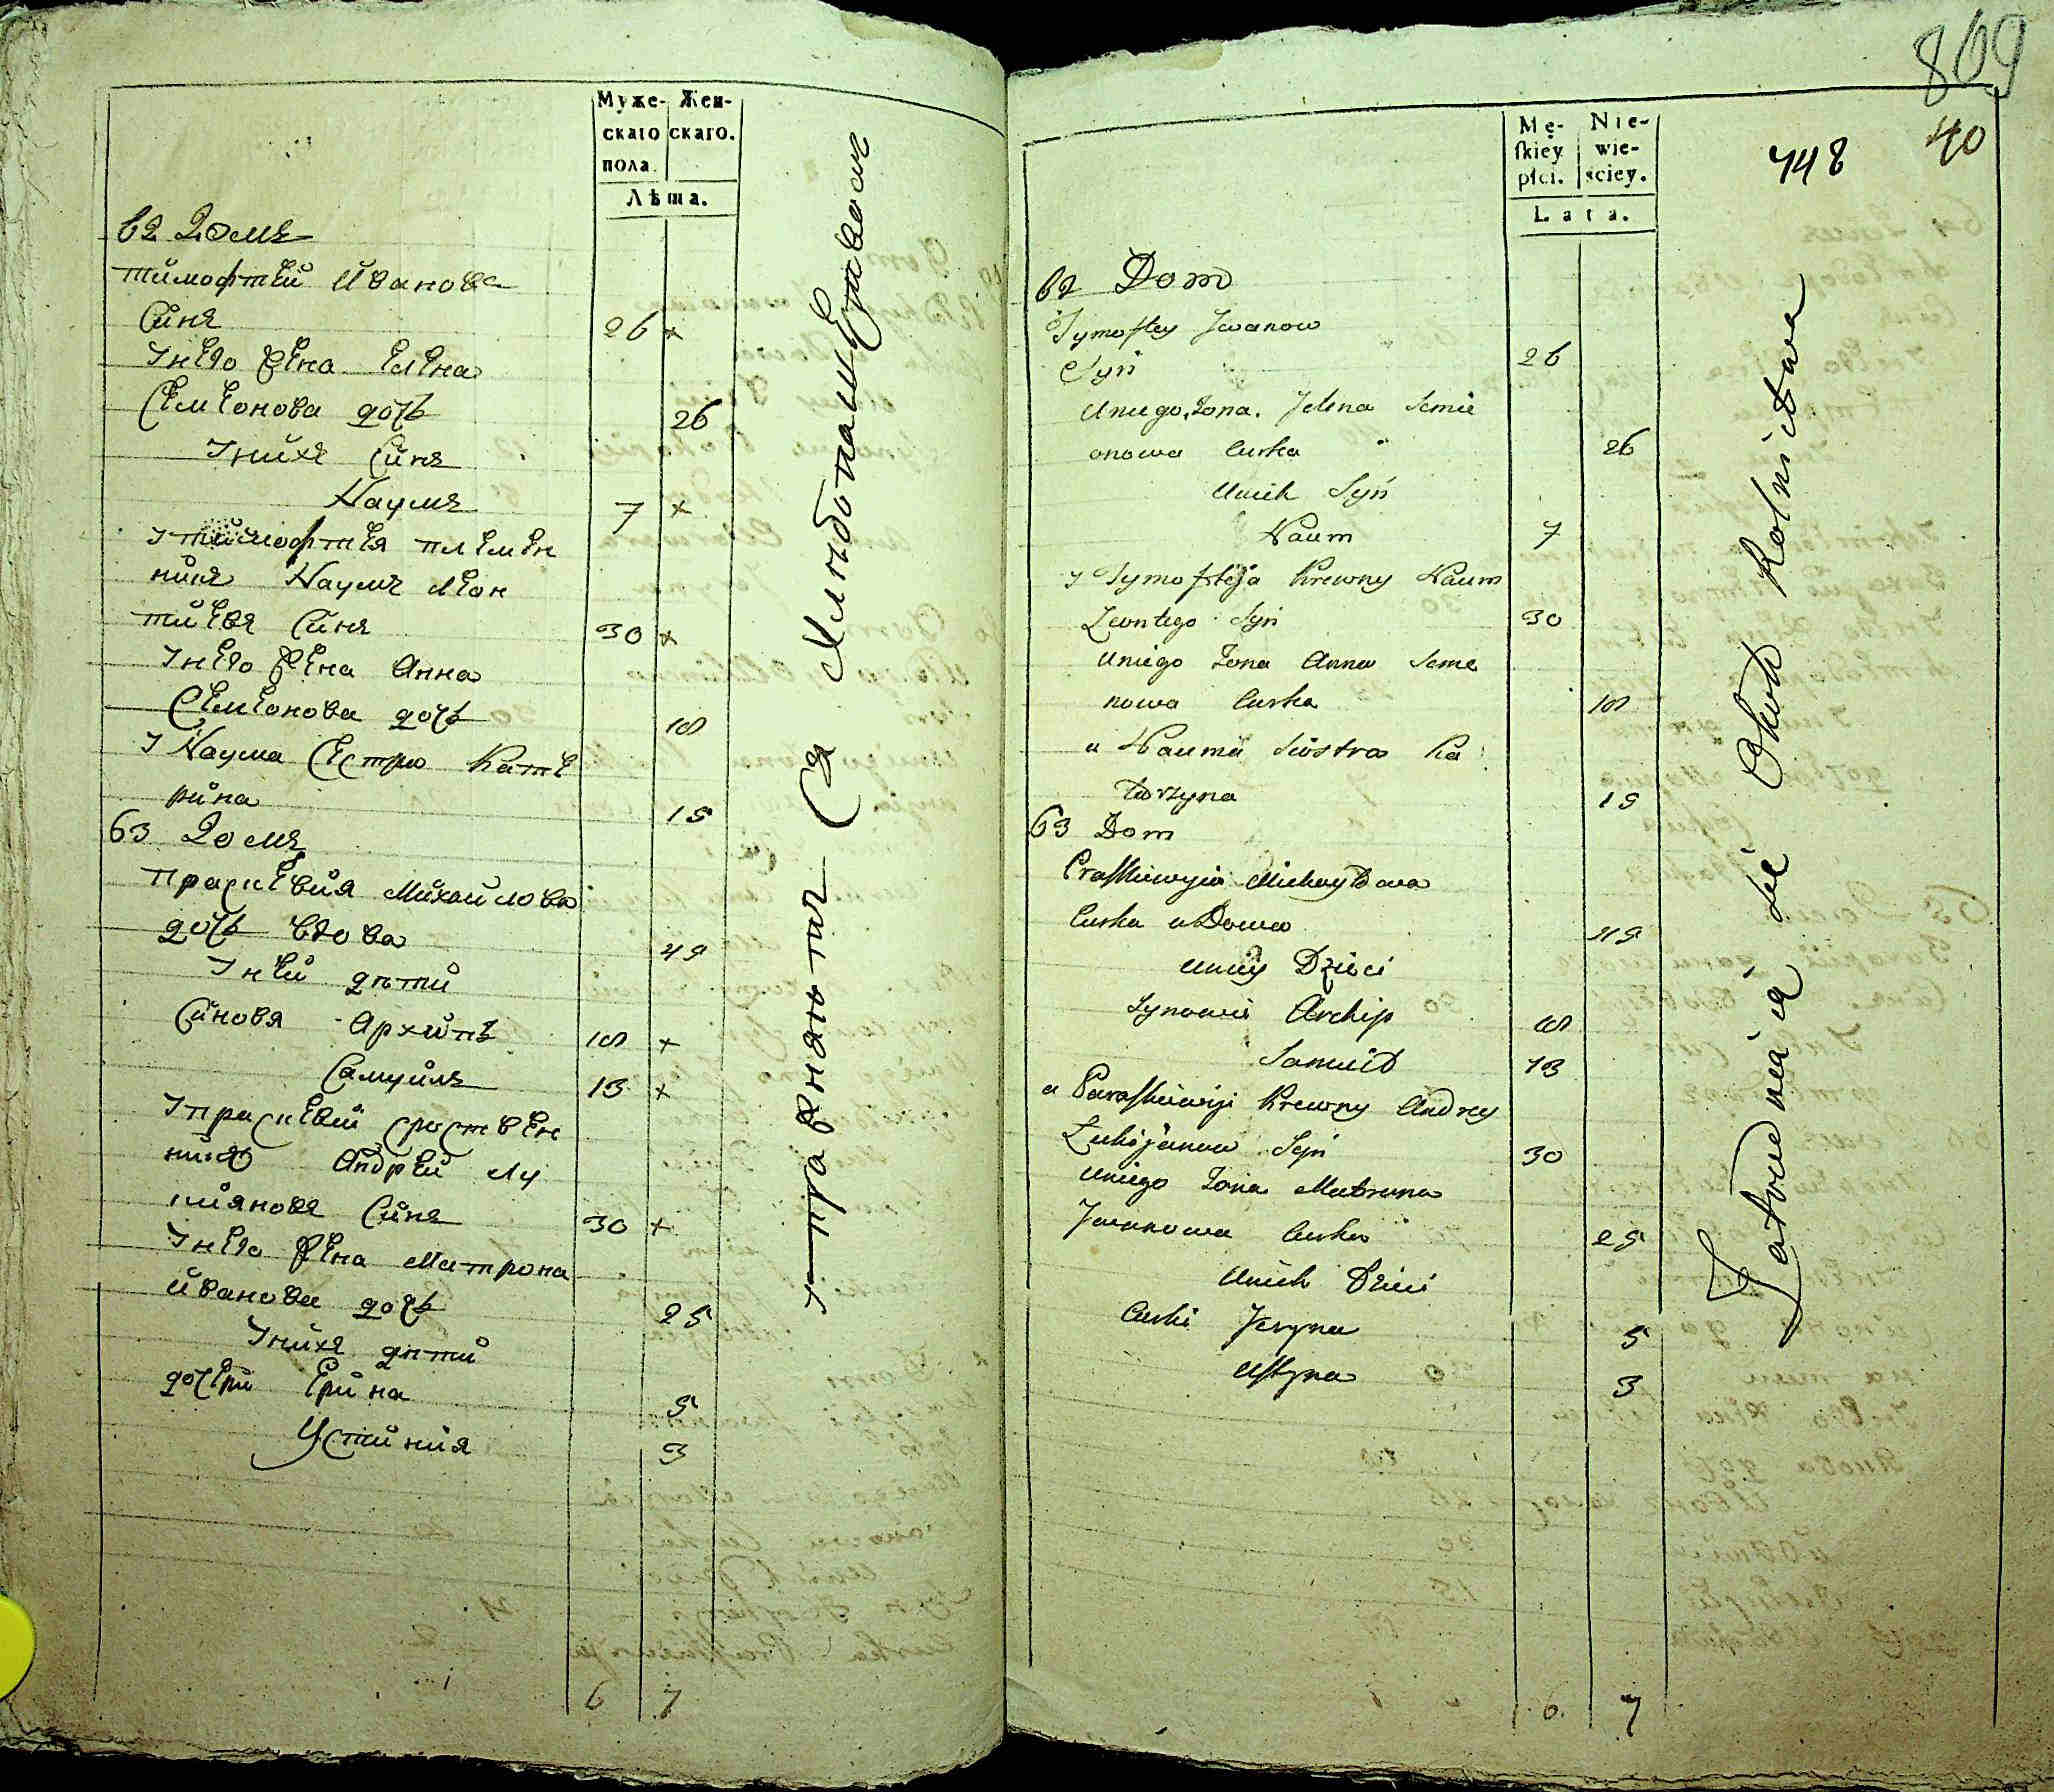 Муже-
скаго
пола.
Жен-
скаго.
Лѣта.
62 Домъ
тимофтей Иванова
Синъ 26 ×
Унего жена Елена
Семеонова дочь 26
Унихъ Синъ
Наумъ 7 ×
У тимофтея племен
никъ Наумъ Леон
тиевъ Синъ 30 ×
Унего жена Анна
Семеонова дочь 18
У Наума Сестра Кате
рина 15
63 Домъ
прасꙗевия Михайлова
дочь вдова 45
Уней дѣти
Синовя Архипъ 18 ×
Самуилъ 13 ×
Упраскевии срод­ствен
никъ Андрей Лу
кияновъ Синъ 30 ×
Унего жена Матрона
Иванова дочь 25
Унихъ дѣти
дочери Ерина 5
Устиния 3
6 7
упра­вняютъ Ся Хлибопашеством
809
748
40
Mę-
skiey
płci.
Nie-
wie-
sciey.
Lata.
62 Dom
Tymoftey Jwanow
Syn 26
Uniego Zona Jelena Semie
onowa Curka 26
Unich Syn
Naum 7
y Tymofteja Krewny Naum
Leontego Syn 30
Uniego Zona Anna Seme
nowa Curka 18
u Nauma Siostra Ka
tarzyna 15
63 Dom
Praskiewyia Michayłowa
Curka wDowa 45
Uniey Dzieci
Synowie Archip 18
Samuił 13
u Paraskiewiji Krewny Andrey
Łukijanow Syn 30
Uniego Zona Matrona
Jwanowa Curka 25
Unich Dzieci
Curki Jeryna 5
Ustyna 3
6. 7
Zatrudniaią się Okoła Rolnictwa